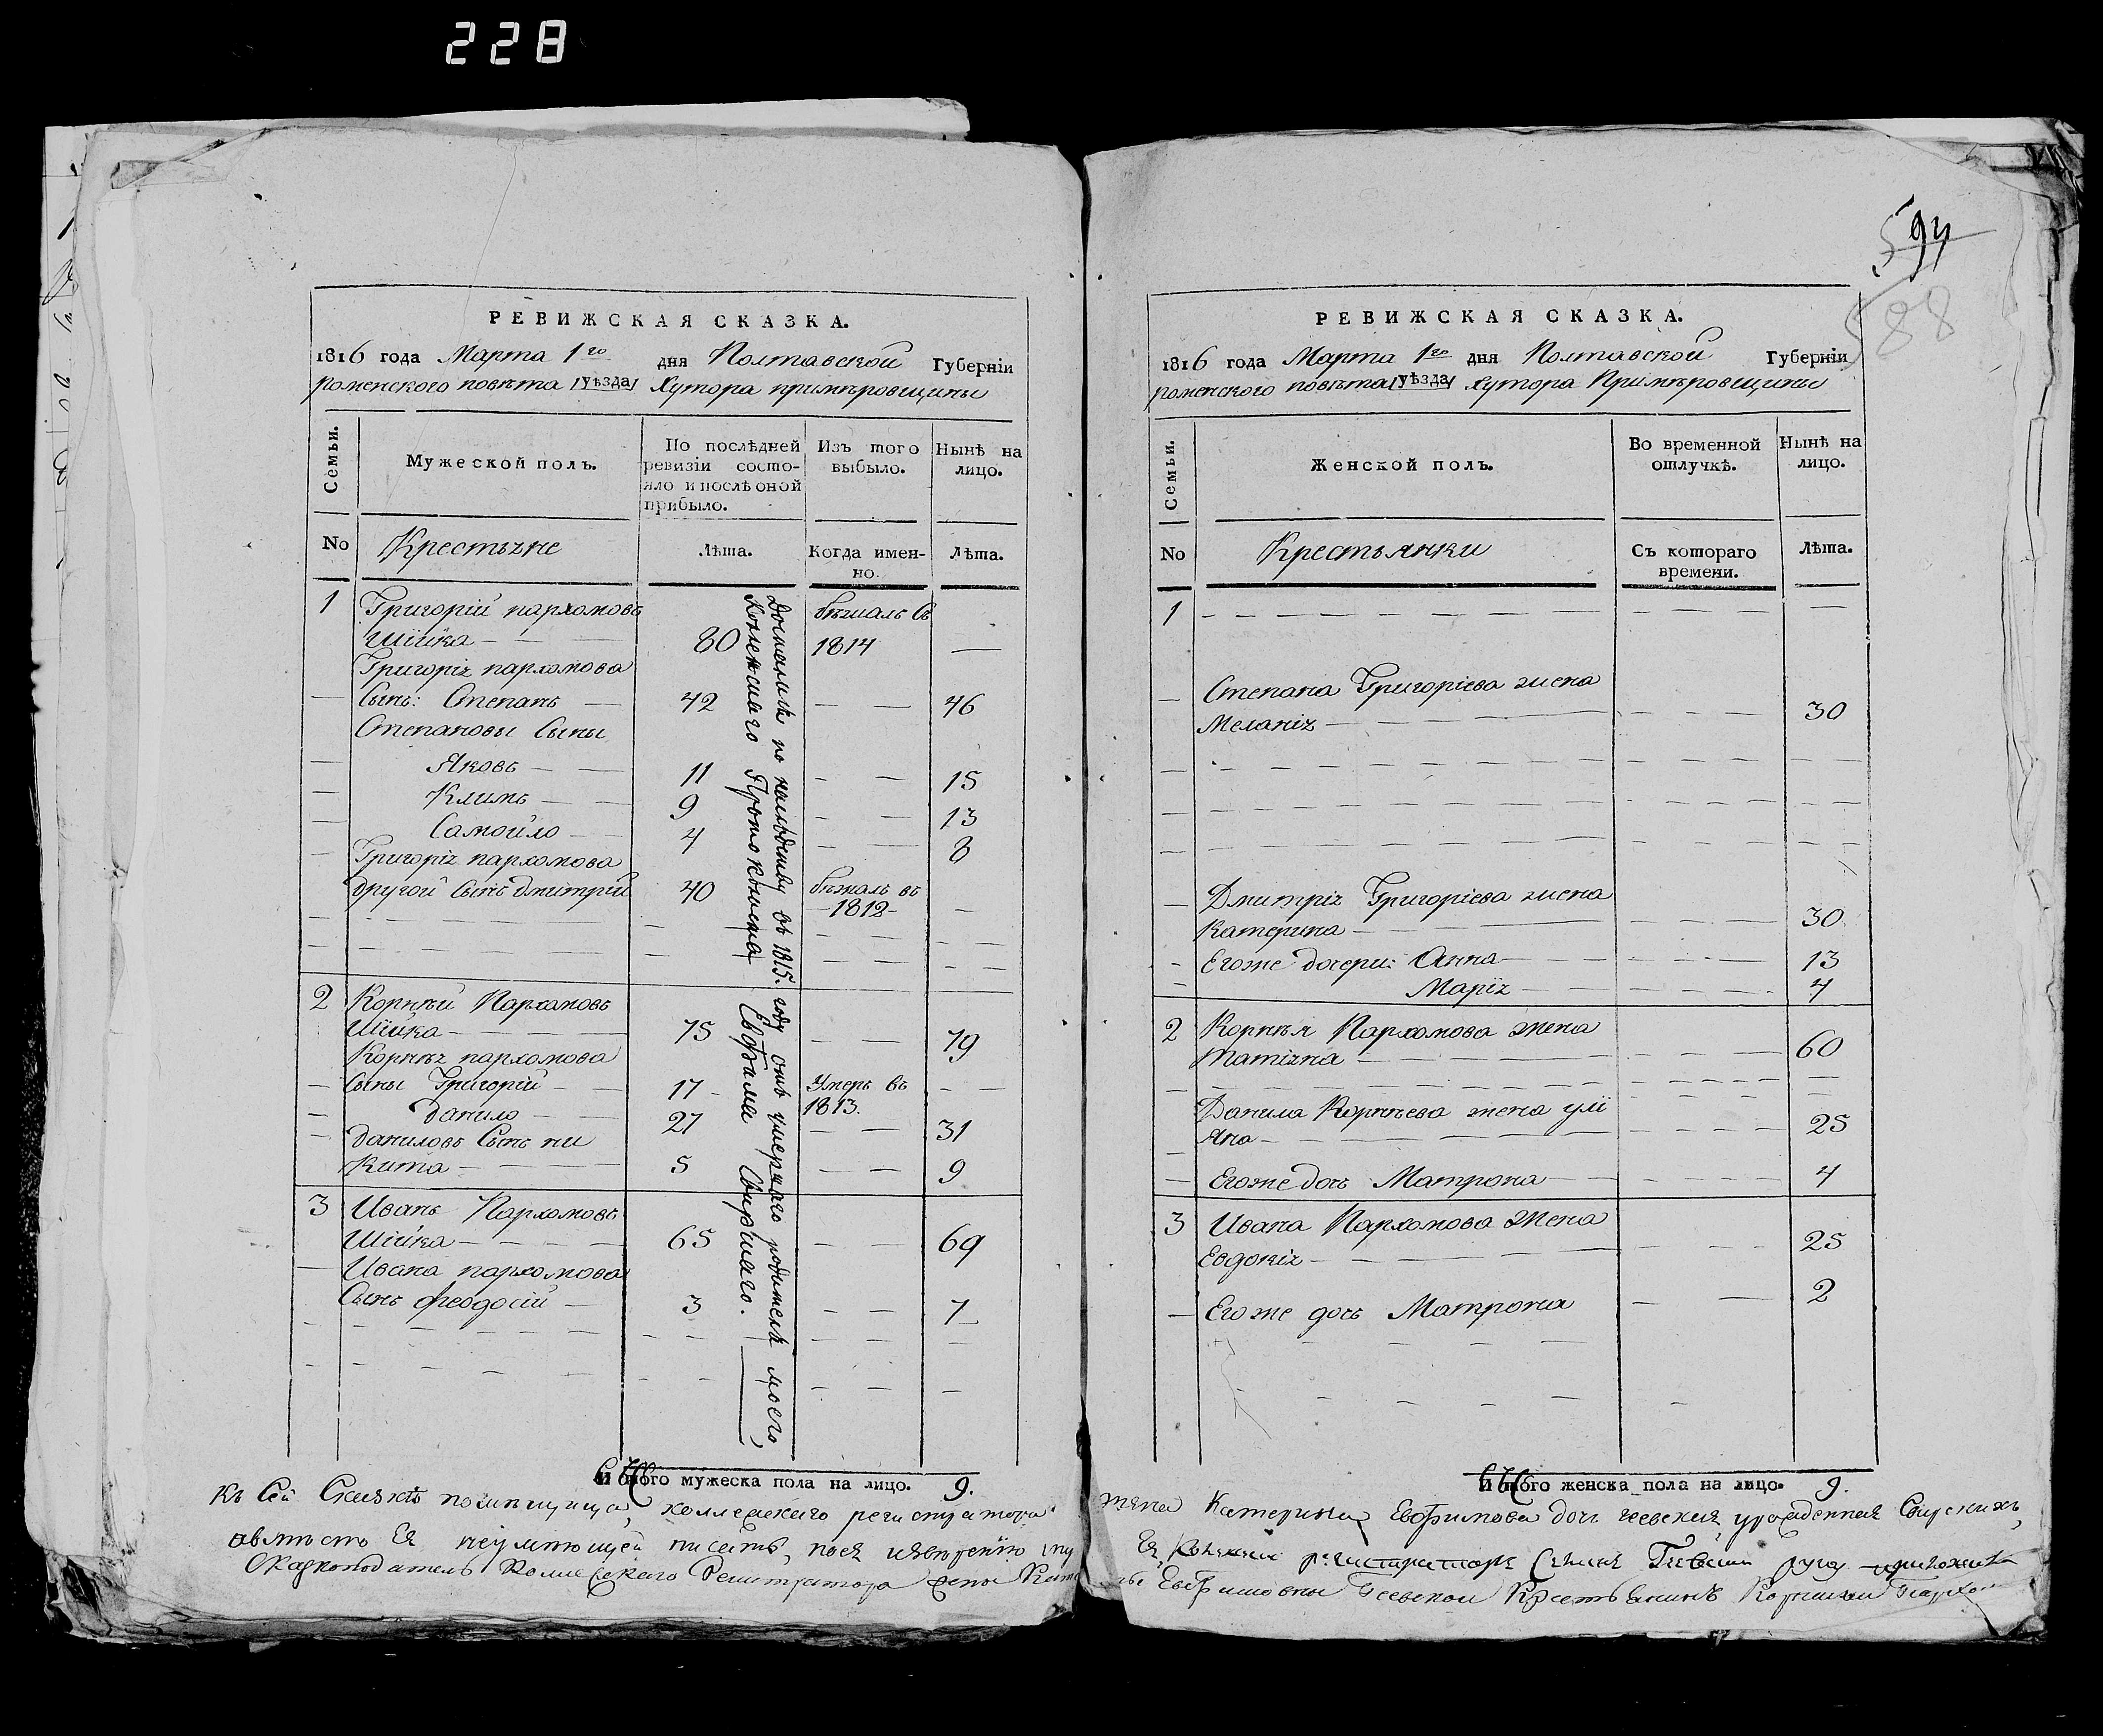 228
РЕВИЖСКАЯ СКАЗКА.
1816 года Марта 1го дня Полтавской Губерніи
роменского повѣта /уѣзда/ Хутора примѣровщины
Семьи.
Мужеской полъ.
По послѣдней ревизіи состо-
яло и послѣ оной
прибыло.
Изъ того
выбыло.
Нынѣ на
лицо.
No
Крестьяне
Лѣта.
Когда имен-
но.
Лѣта.
1 Григорій пархомовъ бѣжалъ въ
Шійка 80 1814
Григорія пархомова
Сынъ: Степанъ 42 46
Степановы Сыны
Яковъ 11 15
Климъ 9 13
Самойло 4 8
Григорія пархомова
другой Сынъ дмитрій 40 бѣжалъ въ
1812
2 Корнѣй Пархомовъ
Шійка 75 79
Корнѣя пархомова
Сыны Григорій 17 Умеръ въ
Данило 27 1813. 31
Даниловъ Сынъ ни
кита 5 9
3 Иванъ Пархомовъ
Шійка 65 69
Ивана пархомова
Сынъ феодосій 3 7
Достались по наслѣдству въ 1815. году отъ умершаго родителя моего,
Протоколиста Евфима Свирскаго.
Итого мужеска пола на лицо. 9.
594
588
РЕВИЖСКАЯ СКАЗКА.
1816 года Марта 1го дня Полтавской Губерніи
роменского повѣта /уѣзда/ хутора Примѣровщины
Семьи.
Женской полъ.
Во временной
отлучкѣ.
Нынѣ на
лицо.
No
Крестьянки
Съ котораго
времени.
Лѣта.
1
Степана Григоріева жена
Меланія 30
Дмитрія Григоріева жена
Катерина 30
Егоже дочери: Анна 13
Марія 4
2 Корнѣя Пархомова жена
Татіяна 60
Данила Корнѣева жена улі
яна 25
Егоже дочь Матрона 4
3 Ивана Пархомова жена
Евдокія 25
Егоже дочь Матрона 2
Итого женска пола на лицо. 9.
Къ Сей Сказкѣ помѣщица, коллежскаго регистратора жена Катерина Евфимова дочь
вмѣсто Ея неумѣющей писать, по Ея
Сказкоподатель Коллежскаго Регистратора жены Евфимовны Гсевской Крестьянинъ Корнѣй